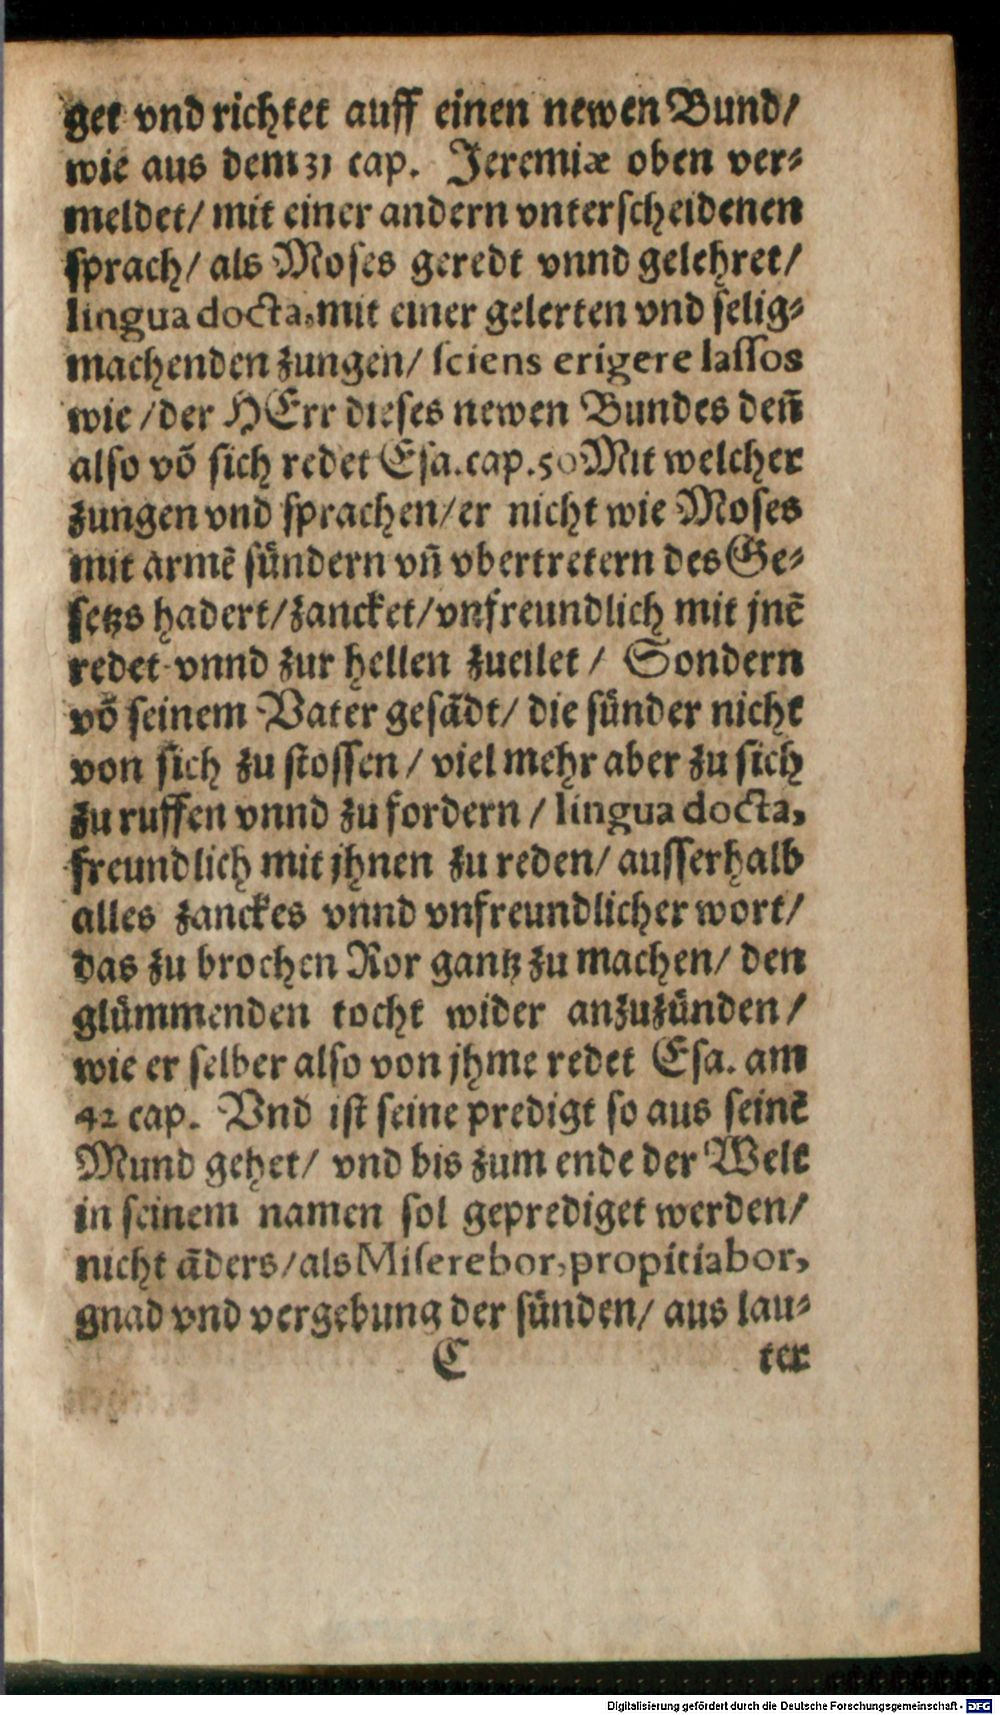 get vnd richtet auff einen newen Bund/
wie aus dem 31 cap. Jeremiæ oben ver⸗
meldet/ mit einer andern vnterscheidenen
sprach/ als Moses geredt vnnd gelehret/
lingua docta, mit einer gelerten vnd selig⸗
machenden zungen/ sciens erigere lassos
wie /der HErr dieses newen Bundes deñ
also võ sich redet Esa. cap. 50 Mit welcher
zungen vnd sprachen/ er nicht wie Moses
mit armẽ sündern vñ vbertretern des Ge⸗
setzs hadert/ zancket/ vnfreundlich mit jnẽ
redet vnnd zur hellen zueilet / Sondern
võ seinem Vater gesãdt/ die sünder nicht
von sich zu stossen / viel mehr aber zu sich
zu ruffen vnnd zu fordern / lingua docta,
freundlich mit jhnen zu reden/ ausserhalb
alles zanckes vnnd vnfreundlicher wort/
das zu brochen Ror gantz zu machen/ den
glümmenden tocht wider anzuzünden/
wie er selber also von jhme redet Esa. am
42 cap. Vnd ist seine predigt so aus seinẽ
Mund gehet/ vnd bis zum ende der Welt
in seinem namen sol geprediget werden/
nicht ãders/ als Miserebor, propitiabor,
gnad vnd vergebung der sünden/ aus lau⸗
C ter
Digitalisierung gefördert durch die Deutsche Forschungsgemeinschaft - DFG